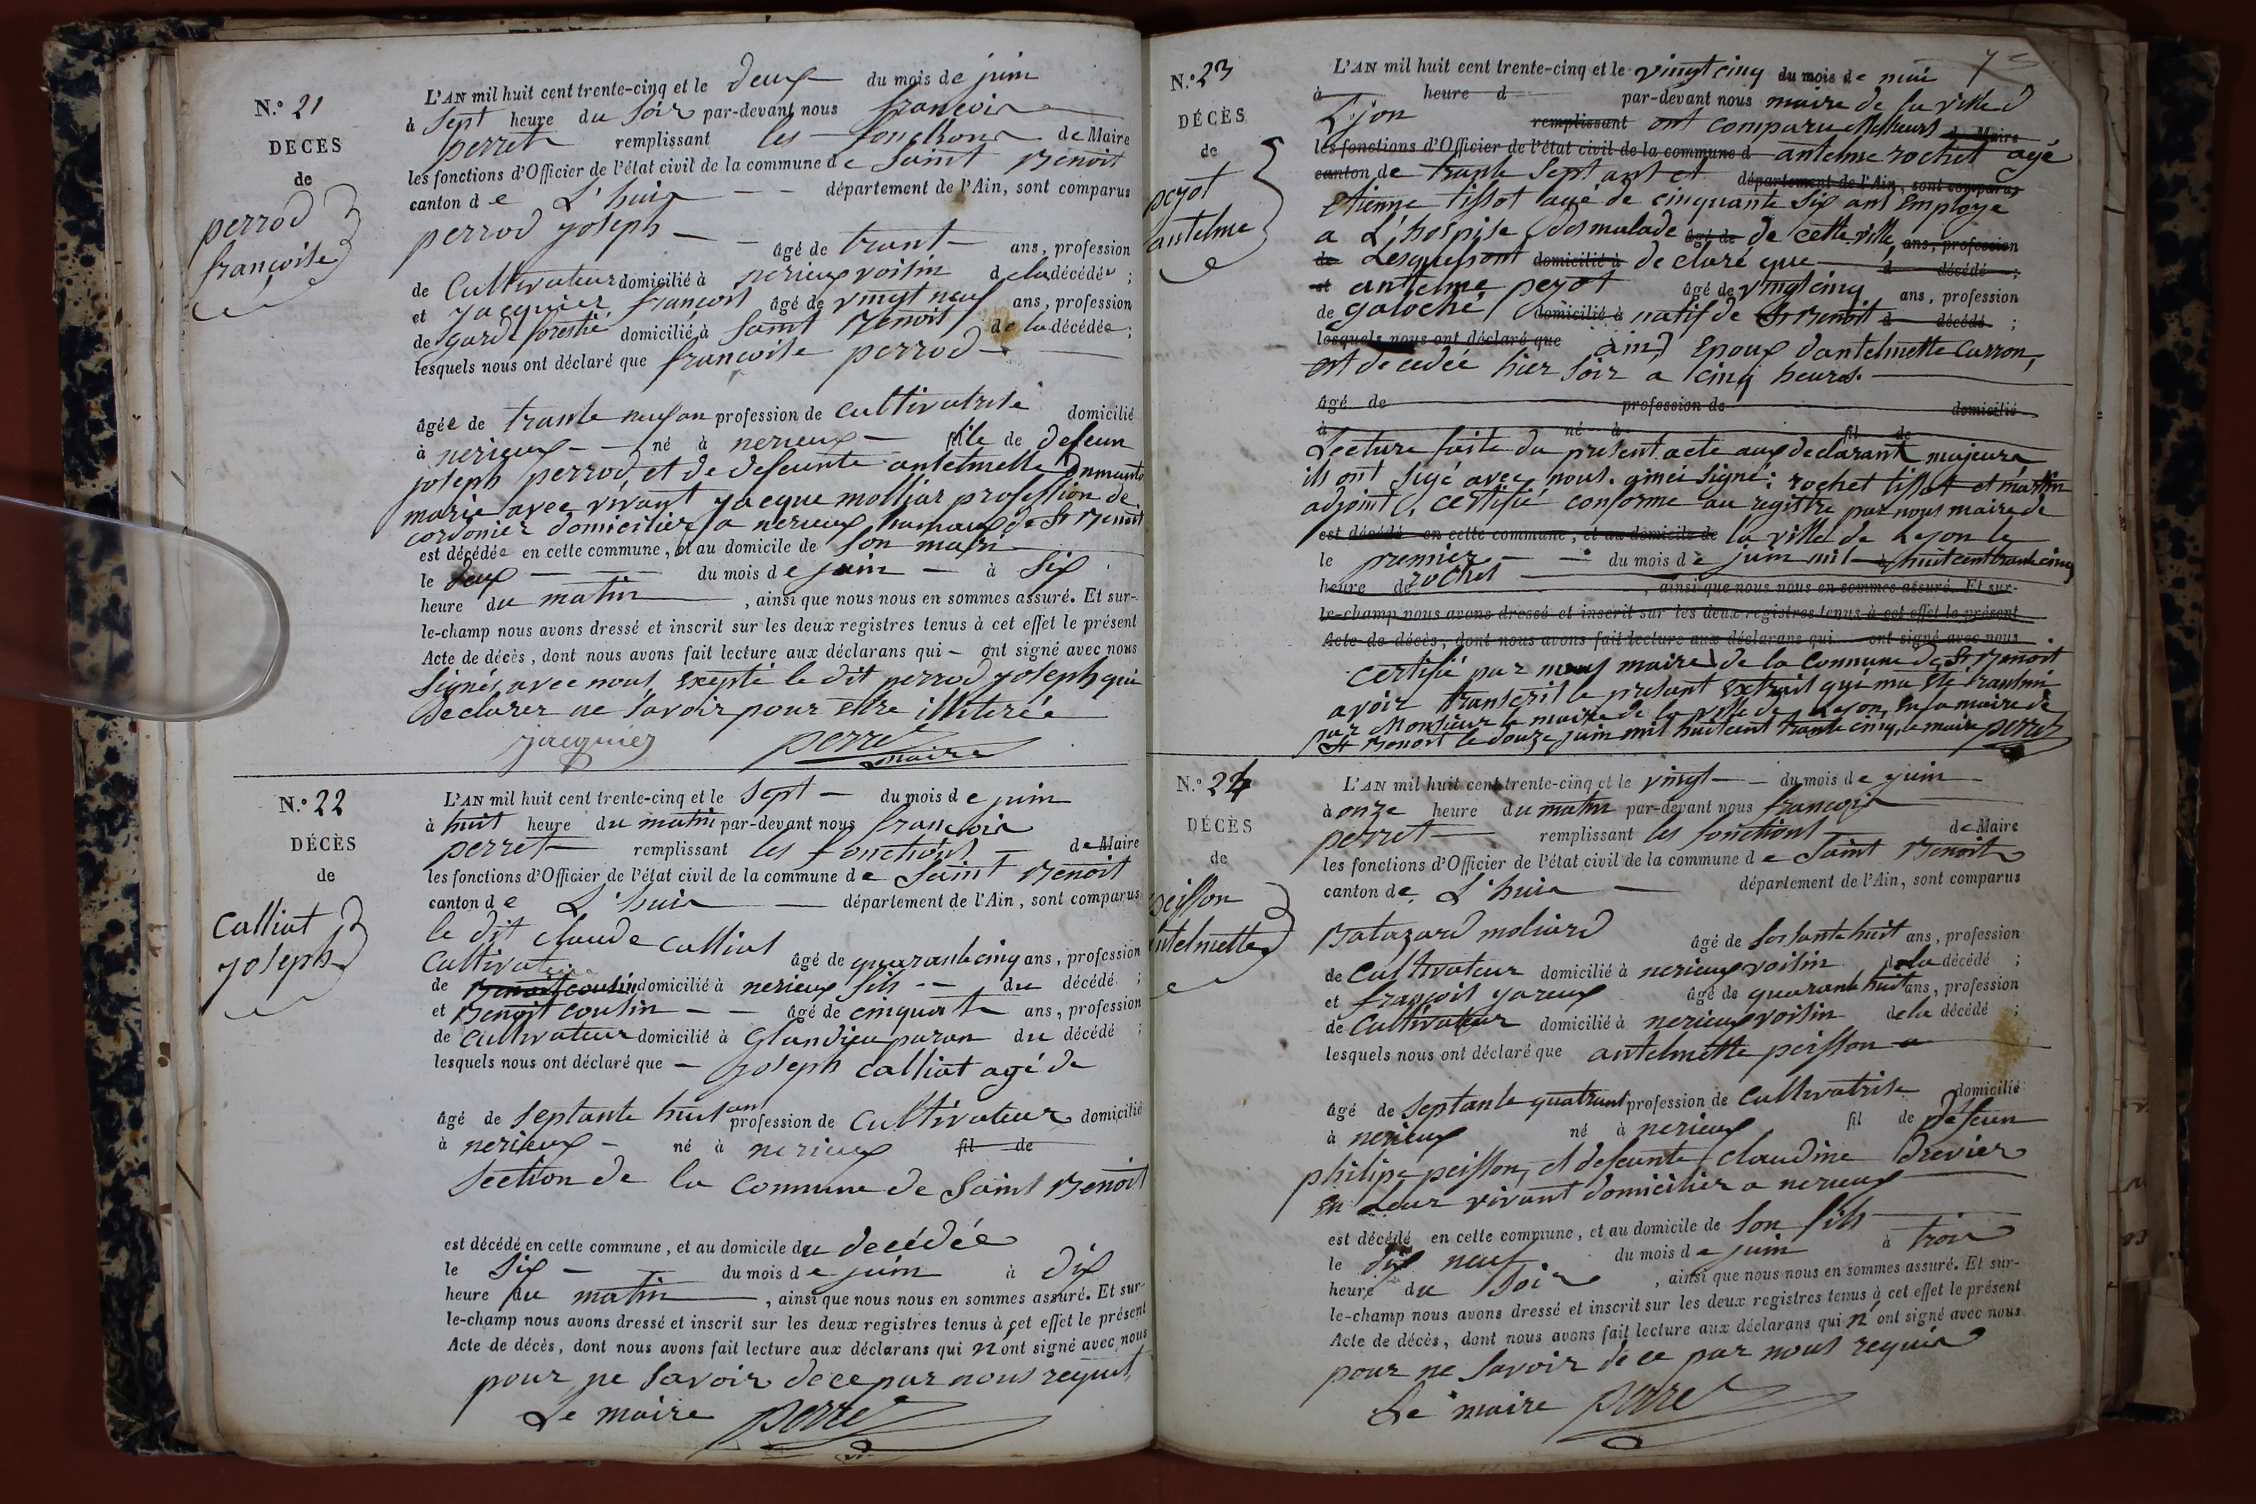 N.° 21
DÉCÈS
de
perrod
françoise
L'AN mil huit cent trente-cinq et le deux du mois de juin
à sept heure du soir par-devant nous francois
perret remplissant les fonctions de Maire
les fonctions d'Officier de l'état civil de la commune de saint Benoit
canton de L'huis département de l'Ain, sont comparus
perrod joseph âgé de trant ans, profession
de Cultivateur domicilié à nerieux voisin de la décédée ;
et jacquier francois âgé de vingt neuf ans, profession
de garde forestié domicilié à saint Benoit de la décédée ;
lesquels nous ont déclaré que francoise perrod
âgée de trante neuf an profession de cultivatrise domicilié
à nerieux né à nerieux file de defeun
joseph perrod et de defeunte antelmette
marie avec vivant jacque molliar profession de
cordonier domicilier a nerieux hamaux de St Benoit
est décédée en cette commune, et au domicile de son mari
le deux du mois de juin à six
heure du matin, ainsi que nous nous en sommes assuré. Et sur-
le-champ nous avons dressé et inscrit sur les deux registres tenus à cet effet le présent
Acte de décès, dont nous avons fait lecture aux déclarans qui ont signé avec nous
signés avec nous exepté le dit perrod joseph qui
declarer ne savoir pour etre illiterée
jacquier perret
maire
N.° 22
DÉCÈS
de
Calliat
joseph
L'AN mil huit cent trente-cinq et le sept du mois de juin
à huit heure du matin par-devant nous francois
perret remplissant les fonctions de Maire
les fonctions d'Officier de l'état civil de la commune de saint Benoit
canton de L'huis département de l'Ain, sont comparus
le dit claude calliat âgé de quarante cinq ans, profession
Cultivat
de Benoit coulin domicilié à nerieux fils du décédé ;
et Benoit coulin âgé de cinquante ans, profession
de cultivateur domicilié à Glandieu paran du décédé ;
lesquels nous ont déclaré que joseph calliat agé de
âgé de septante huit an profession de cultivateur domicilié
à nerieux né à nerieux fil de
section de la commune de saint Benoit
est décédé en cette commune, et au domicile du decédée
le six du mois de juin à dix
heure du matin, ainsi que nous nous en sommes assuré. Et sur-
le-champ nous avons dressé et inscrit sur les deux registres tenus à cet effet le présent
Acte de décès, dont nous avons fait lecture aux déclarans qui n'ont signé avec nous
pour ne savoir de ce par nous requit
Le maire perret
N.° 23
DÉCÈS
de
peyot
antelme
L'AN mil huit cent trente-cinq et le vingt cinq du mois de mai
à heure d par-devant nous maire de la ville d
Lyon remplissant ont comparu Messieurs de Maire
les fonctions d'Officier de l'état civil de la commune d antelme rochet agé
canton de trante sept ans et département de l'Ain, sont comparus
etienne tissot agé de cinquante six ans Employe
a L'hospise des malade âgé de de cette ville ans, profession
de Lesquels ont domicilié à de claré que d décédé ;
et antelme peyot âgé de vingt cinq ans, profession
de galoché domicilié à natif de St Benoit d décédé ;
lesquels nous ont déclaré que (ain) Epoux d'antelmette Carron,
est de cedeé hier soir a cinq heures.
âgé de profession de domicilié
à né à fil de
Lecture faite du présent acte aux declarant majeurs
ils ont sigé avec nous. ainsi signé: rochet tissot et martin
adjoint, certifié conforme au registre par nous maire de
est décédé en cette commune, et au domicile de la ville de Leyon le
le premier du mois de juin mil à huit cent trante cinq
heure de rochet, ainsi que nous nous en sommes assuré. Et sur-
le-champ nous avons dressé et inscrit sur les deux registres tenus à cet effet le présent
Acte de décès, dont nous avons fait lecture aux déclarans qui ont signé avec nous
certifié par nous maire de la commune de St Benoit
avoir transcrit le present extrait qui ma été transmi
par Monsieur le maire de la ville de Leyon, En la mairé de
St Benoit le douze juin mil huit cent trante cinq, le maire perret
N.° 24
DÉCÈS
de
peisson
antelmette
L'AN mil huit cent trente-cinq et le vingt du mois de juin
à onze heure du matin par-devant nous francois
perret remplissant les fonctions de Maire
les fonctions d'Officier de l'état civil de la commune de Saint Benoit
canton de L'huis département de l'Ain, sont comparus
Batazard moliard âgé de soisante huit ans, profession
de cultivateur domicilié à nerieux voisin de la décédé ;
et françois jareux âgé de quarante huit ans, profession
de Cultivateur domicilié à nerieux voisin de la décédé ;
lesquels nous ont déclaré que antelmette peisson
âgé de septante quatrant profession de cultivatrise domicilié
à nerieux né à nerieux fil de defeun
philipe peisson, et defeunte claudine drevier
en leur vivant domicilier a nerieux
est décédé en cette commune, et au domicile de son fils
le dix neuf du mois de juin à trois
heure du soir, ainsi que nous nous en sommes assuré. Et sur-
le-champ nous avons dressé et inscrit sur les deux registres tenus à cet effet le présent
Acte de décès, dont nous avons fait lecture aux déclarans qui n'ont signé avec nous
pour ne savoir de ce par nous requis
Le maire perret